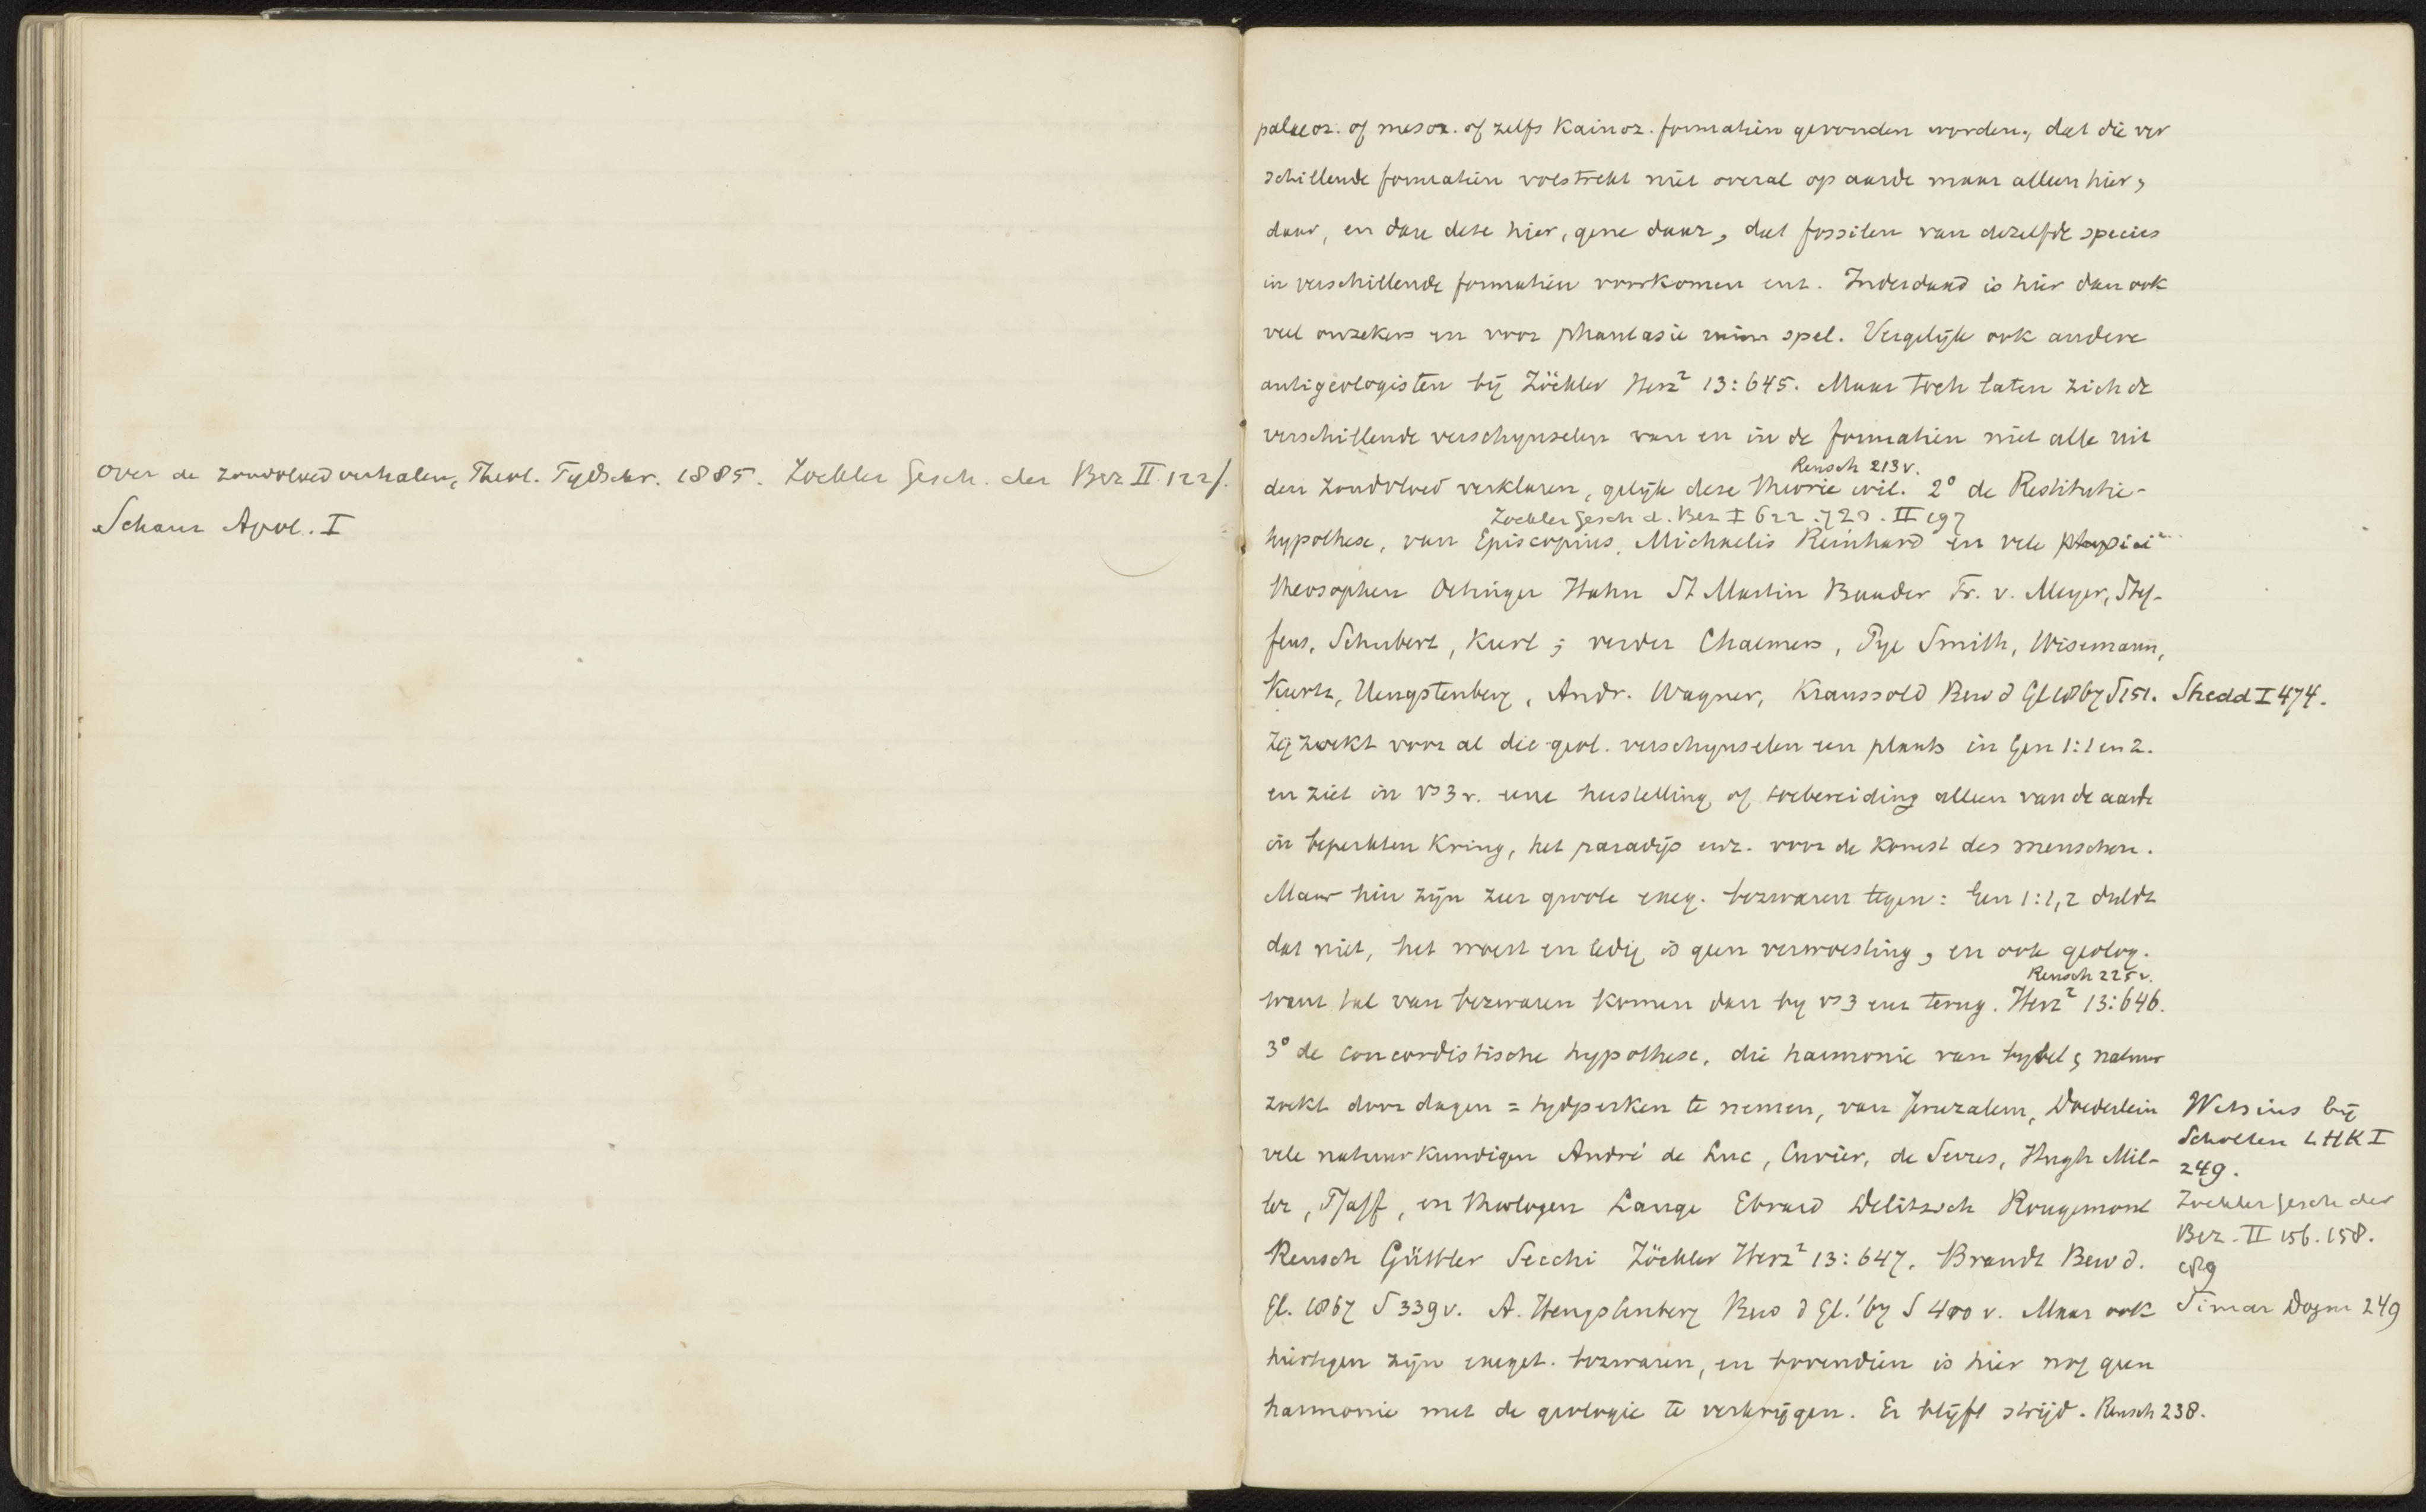 over de zondvloedverhalen, Theol. Tydschr. 1885. Zöckler Gesch. der Bez II 122f.
Schanz Apol. I
palaeoz. of mesoz. of zelfs Kainoz. formatien gevonden worden, dat die ver
schillende formatien volstrekt niet overal op aarde maar alleen hier,
daar, en dan deze hier, gene daar, dat fossilen van dezelfde species
in verschillende formatien voorkomen enz. Inderdaad is hier dan ook
veel onzekers en voor phantasie ruim spel. Vergelijk ook andere
antigeologisten bij Zöckler Herz² 13:645. Maar toch laten zich de
verschillende verschynselen van en in de formatien niet alle uit
Reusch 213v.
den Zondvloed verklaren, gelijk deze theorie wil. 2° de Restitutie-
Zöckler Gesch d. Bez I 622. 723. II 197
hypothese, van Episcopius, Michaelis Reinhard en vele
theosophen Oetinger Hahn St Martin Baader Fr. v. Meyer, Stef-
fens, Schubert, Kurl; verder Chalmers, Pye Smith, Wisemann,
Kurtz, Hengstenberg, Andr. Wagner, Kraussold Bew d Gl 1867 S 151. Shedd I 474.
Zij zoekt voor al die geol. verschynselen een plaats in Gen 1:1 en 2.
en ziet in vs 3 v. eene herstelling of toebereiding alleen van de aarde
in beperkten Kring, het paradijs enz. voor de Komst des menschen.
Maar hier zijn zeer groote exeg. bezwaren tegen: Gen 1:1,2 duldt
dat niet, het woest en ledig is geen verwoesting, en ook geolog.
Reusch 225v.
want tal van bezwaren komen dan by vs 3 enz terug. Herz² 13:646.
3° de concordistische hypothese, die harmonie van bybel & natuur
zoekt door dagen = tydperken te nemen, van Jeruzalem, Doederlein
vele natuurkundigen André de Luc, Cuvier, de Serres, Hugh Mil-
ler, Pfaff, en theologen Lange Ebrard Delitzsch Rougemont
Reusch Güttler Secchi Zöckler Herz² 13:647. Brandt Bew d.
Gl. 1867 S 339v. A. Hengstenberg Bew d Gl. '67 S 400 v. Maar ook
hiertegen zijn exeget. bezwaren, en bovendien is hier nog geen
harmonie met de geologie te verkrijgen. Er blijft strijd. Reusch 238.
Witsius bij
Scholten LHK I
249.
Zöckler Gesch der
Bez. II 156. 158.
Simar Dogm 249